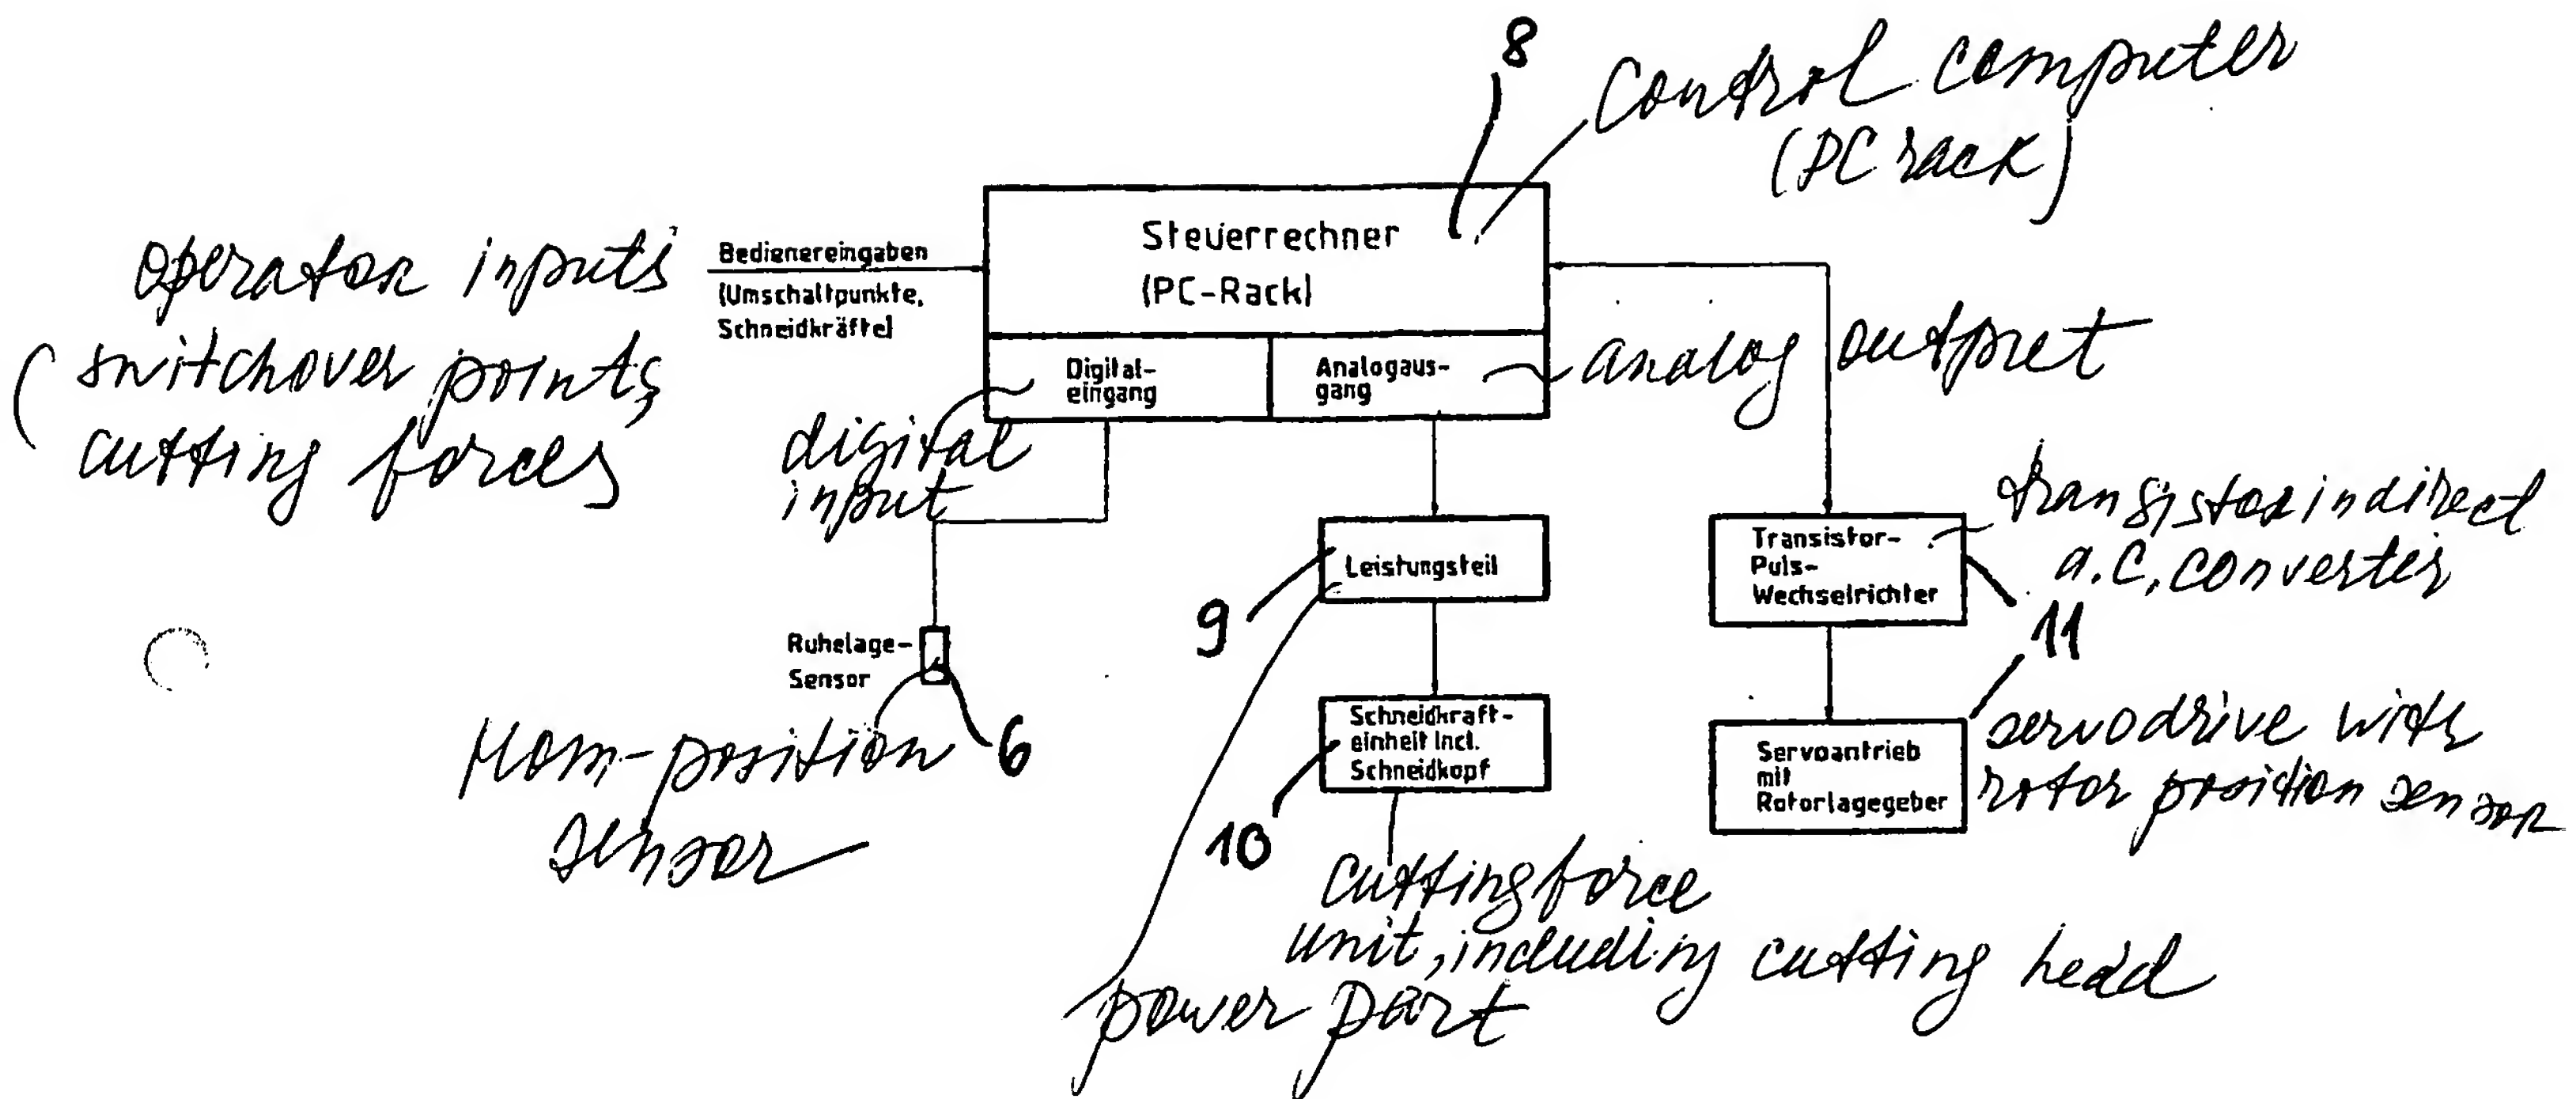 8
Control computer
(PC rack)
Steuerrechner
(PC-Rack)
Bedienereingaben
(Umschaltpunkte,
Schneidkräfte)
operator inputs
(switchover points,
cutting forces
Digital-
eingang
Analogaus-
gang
analog output
digital
input
Leistungsteil
9
Transistor-
Puls-
Wechselrichter
transistor indirect
a.c. converter
11
Ruhelage-
Sensor
6
position
sensor
Schneidkraft-
einheit Incl.
Schneidkopf
10
Servoantrieb
mit
Rotorlagegeber
servodrive with
rotor position sensor
cutting force
unit, including cutting head
power part